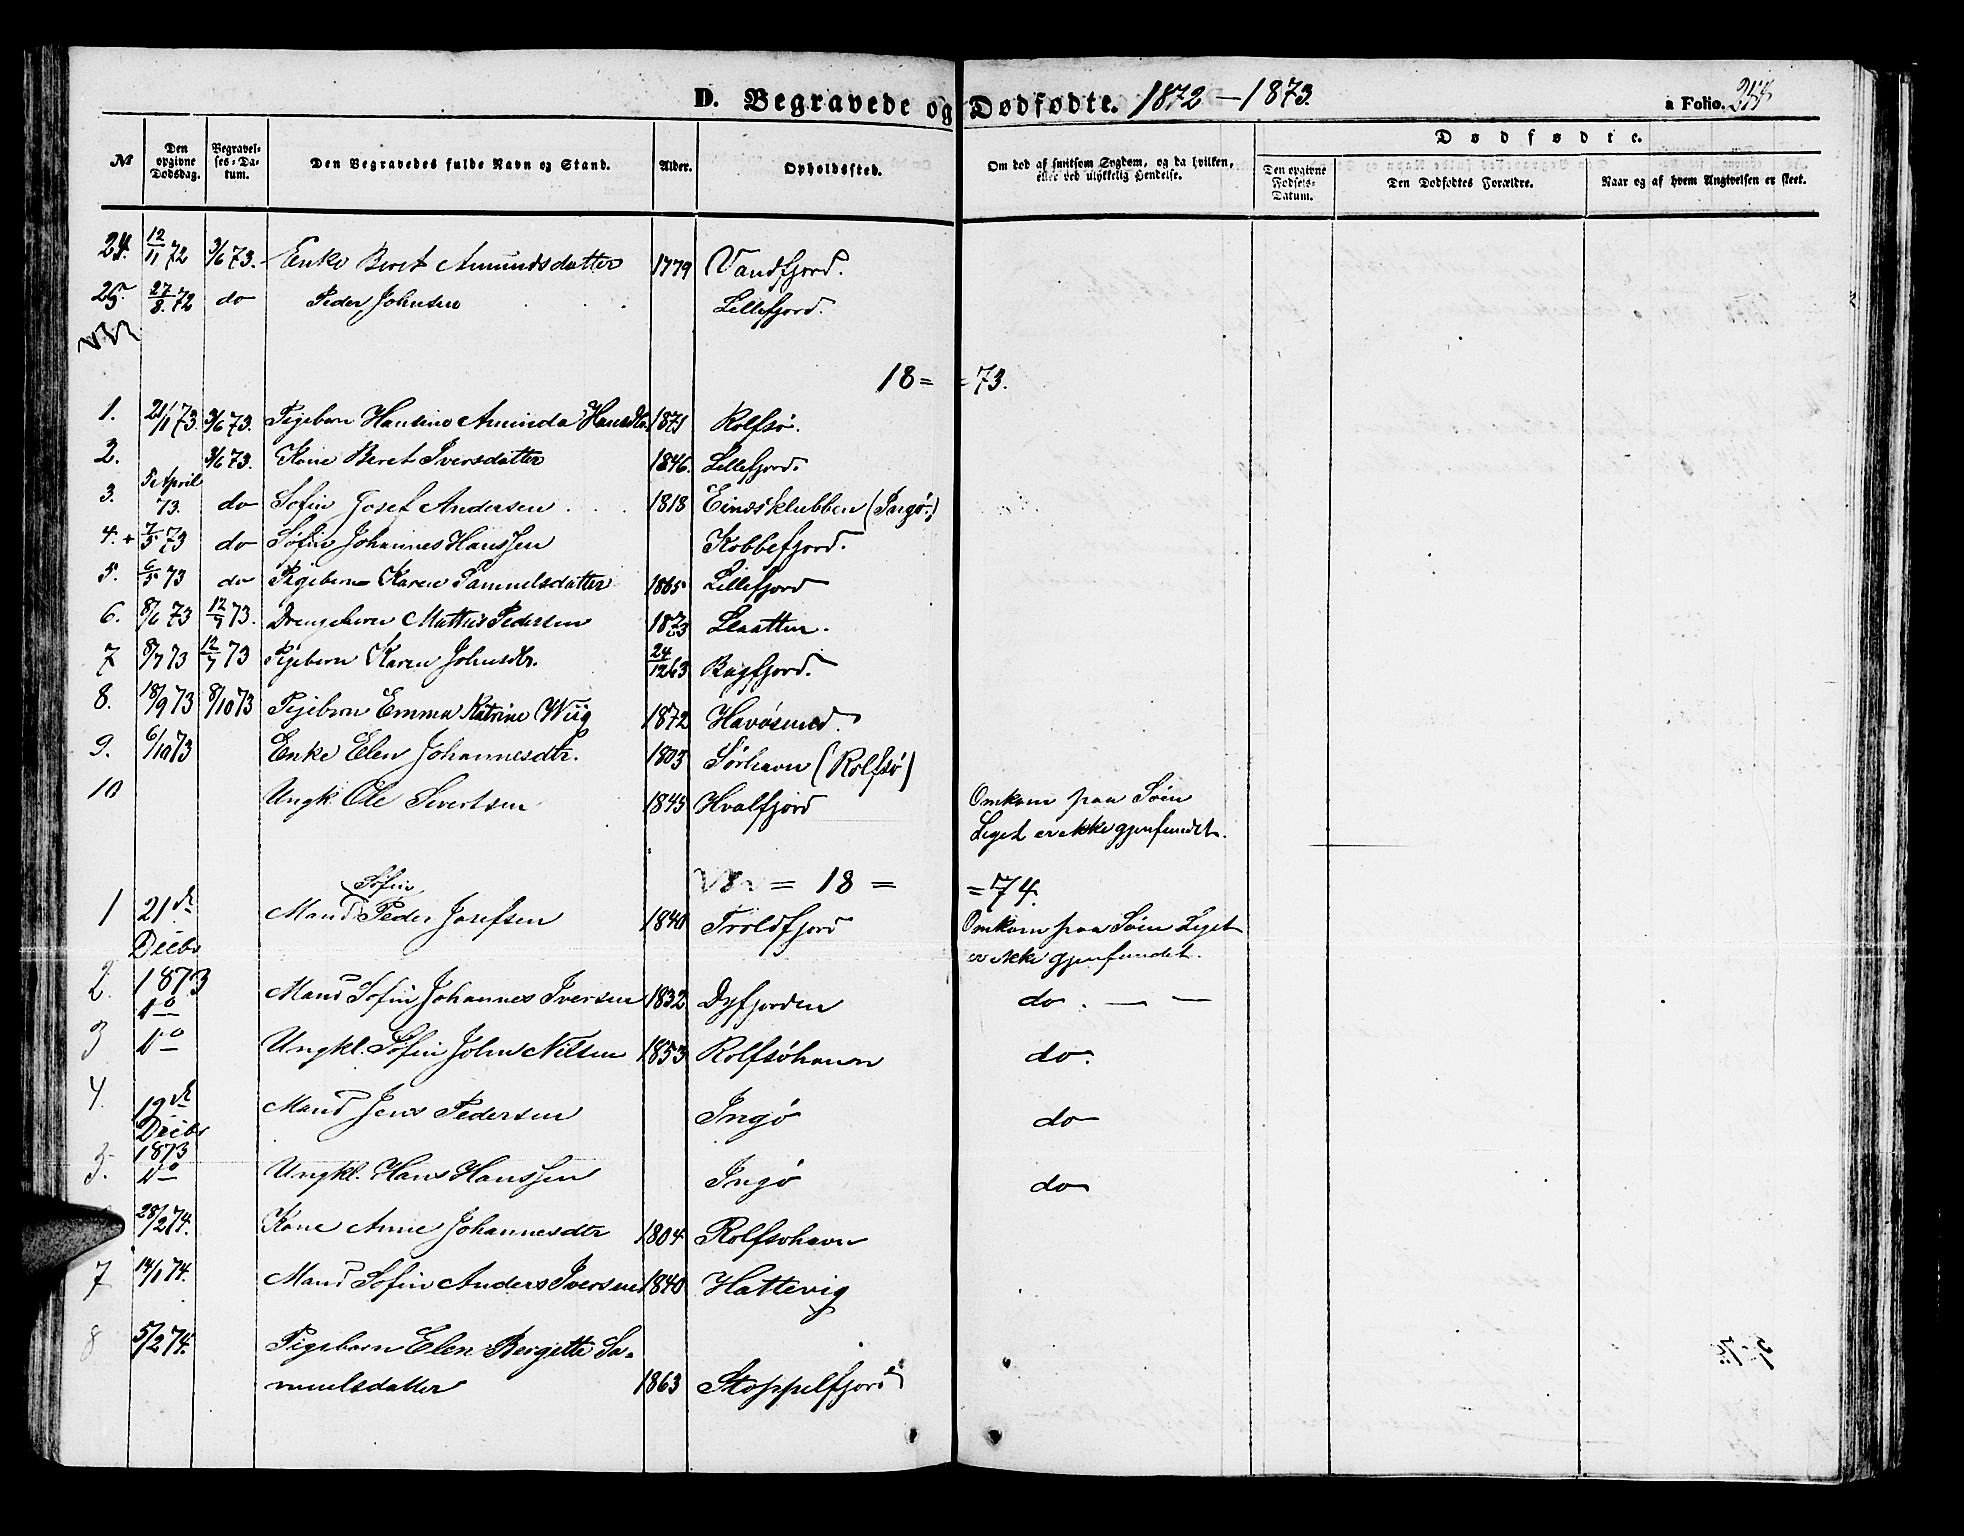 D. Begravede og Dødfødte. 1872 – 1873.
a Folio.
№
Den opgivne Dødsdag.
Begravelses-Datum.
Den Begravedes fulde Navn og Stand.
Alder.
Opholdssted.
Om død af smitsom Sygdom, og da hvilken, eller ved ulykkelig Hendelse.
Dødfødte.
Den opgivne Fødsels-Datum.
Den Dødfødtes Forældre.
Naar og af hvem Angivelsen er skeet.
24. 12/11 72 3/6 73. Enke Beret Amundsdatter 1779 Vandfjord.
25. 27/8. 72 do Peder Johnsen Lillefjord.
18= =73.
1. 21/1 73. 3/6 73. Pigebarn Hansine Aminda Hansdtr. 1871 Rolfsø.
2. 3/6 73. Kone Beret Iversdatter 1846. Lillefjord.
3. 5 April 73. do Sofin Josef Andersen 1818 Eindsklubben (Ingø.)
4. + 7/5 73 do Søfin Johannes Hanssen Kobbefjord.
5. 6/5 73 do Pigebarn Karen Samuelsdatter 1865 Lillefjord
6. 8/6 73 12/7 73. Drengebarn Mathis Pedersen 1873 Slaatten.
7 8/7 73 12/7 73 Pigebarn Karen Johnsdtr. 24/12 63 Bagfjord.
8. 18/9 73 8/10 73 Pigebarn Emma Katrine Wiig 1872 Havøsund.
9. 6/10 73 Enke Elen Johannesdtr. 1803 Sørhavn (Rolfsø)
10 Ungk. Ole Sivertsen 1845 Hvalfjord Omkom paa Søen
Liget er ikke gjenfundet.
= 18 = =74.
Søfin
1 21de Decbr 1873 Mand Peder Josefsen 1840 Troldfjord Omkom paa Søen Liget
er ikke gjenfundet.
2. do Mand Søfin Johannes Iversen 1832 Dyfjorden do. — —
3 do Ungkl. Søfin John Nilsen 1853 Rolfsøhavn do.
4. 19de Decbr 1873 Mand Jens Pedersen Ingø do
5. do Ungkl. Hans Hanssen Ingø do
28/2 74. Kone Anne Johannesdtr 1804 Rolfsøhavn
7 14/1 74. Mand Søfin Anders Iversen 1840 Hattevig
8 5/2 74. Pigebarn Elen Bergette Sa-
muelsdatter 1863 Stoppelfjord